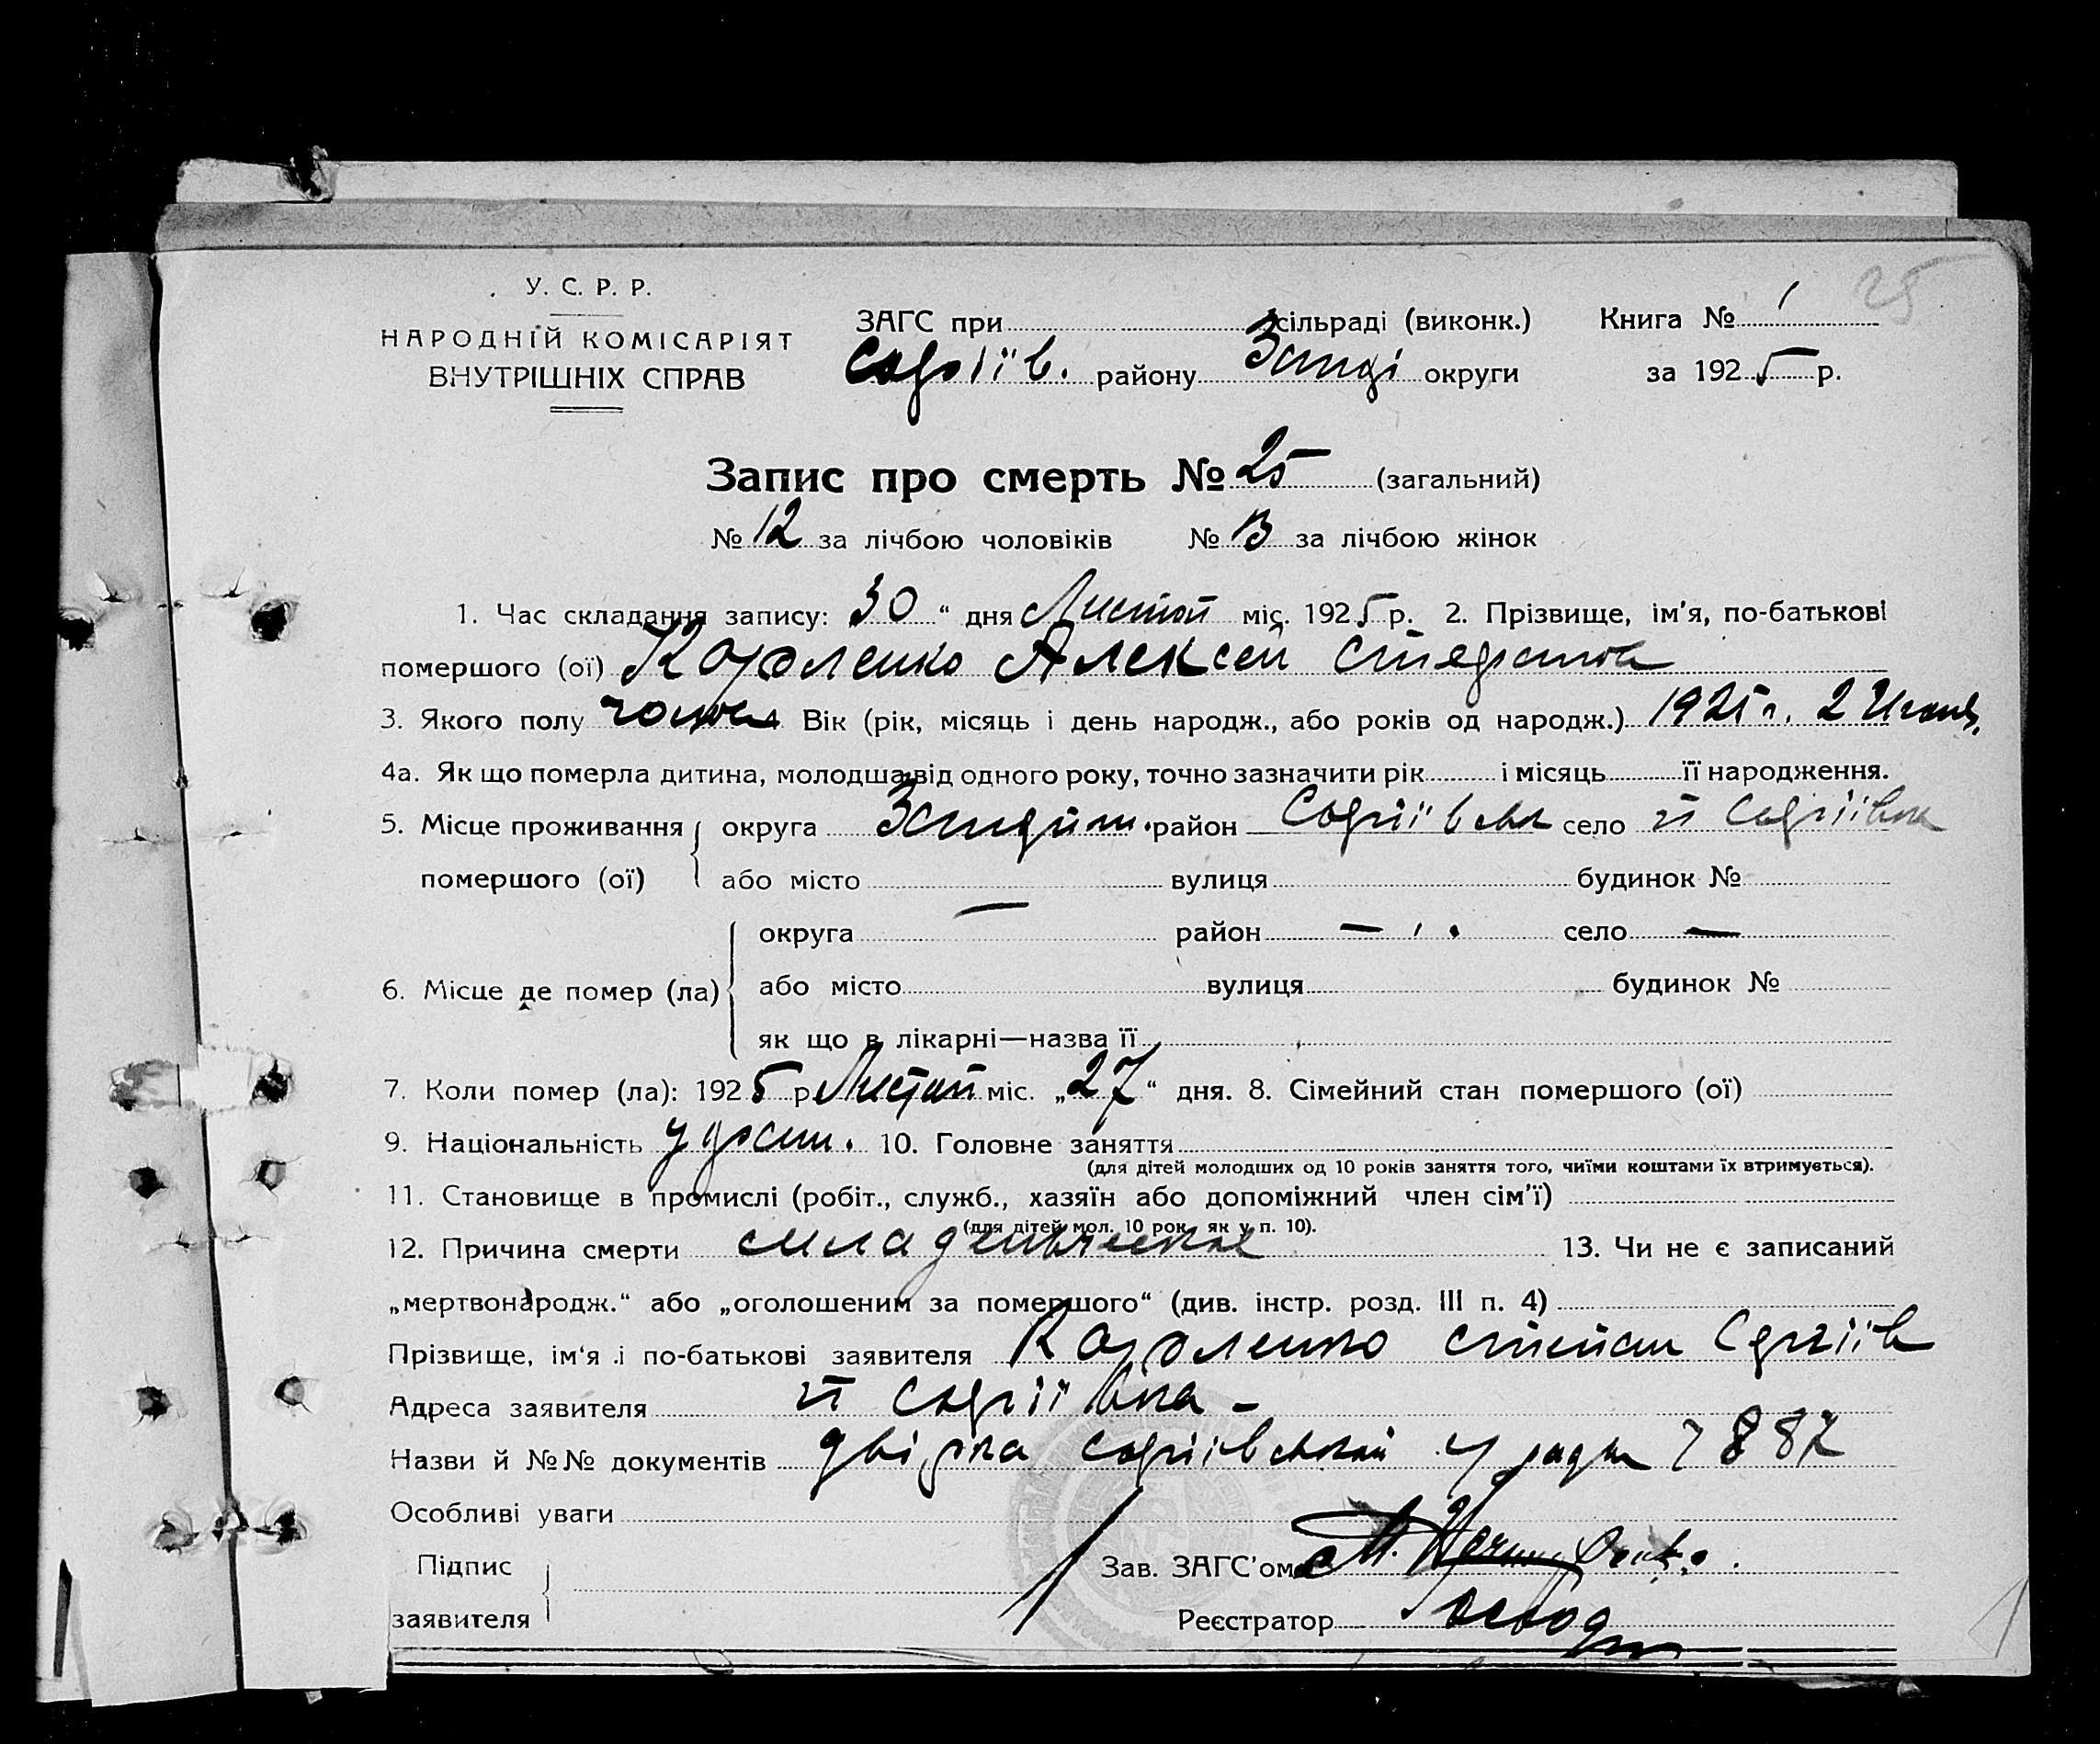 25
У. С. Р. Р.
НАРОДНІЙ КОМІСАРІЯТ
ВНУТРІШНІХ СПРАВ
ЗАГС при сільраді (виконк.) Книга № 1
Софіїв. району округи за 1925 р.
Запис про смерть № 25 (загальний)
№ 12 за лічбою чоловіків № 13 за лічбою жінок
1. Час складання запису: 30 “ дня Листоп міс. 1925 р. 2. Прізвище, ім'я, по-батькові
помершого (ої) Короленко Алексей Стефанов
3. Якого полу 4. Вік (рік, місяць і день народж., або років од народж.) 1925 г. 2
4а. Як що померла дитина, молодша від одного року, точно зазначити рік і місяць її народження.
5. Місце проживання округа район Софіївськ село Софіївка
помершого (ої) або місто вулиця будинок №
округа — район — село —
6. Місце де помер (ла) або місто вулиця будинок №
як що в лікарні—назва її
7. Коли помер (ла): 1925 р. Листоп міс. „27“ дня. 8. Сімейний стан помершого (ої)
9. Національність украін. 10. Головне заняття
(для дітей молодших од 10 років заняття того, чиїми коштами їх втримується).
11. Становище в промислі (робіт., служб., хазяїн або допоміжний член сім'ї)
(для дітей мол. 10 рок. як у п. 10).
12. Причина смерти младенческая 13. Чи не є записаний
„мертвонародж.“ або „оголошеним за помершого“ (див. інстр. розд. III п. 4)
Прізвище, ім'я і по-батькові заявителя Короленко Степан Сергіїв
Адреса заявителя Софіївка -
Назви й №№ документів Софіївської 887
Особливі уваги
Підпис
заявителя
Зав. ЗАГС'ом
Реєстратор